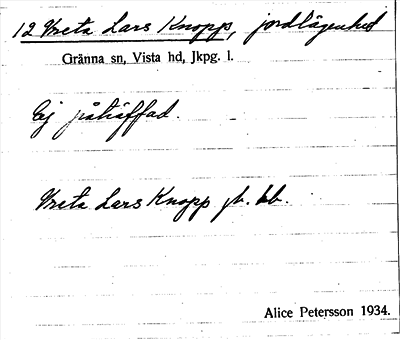 12 Vreta Lars Knopps, jordlägenhet
Gränna sn, Vista hd, Jkpg. l.
Ej påträffad.
Vreta Lars Knopp jb. kb.
Alice Petersson 1934.